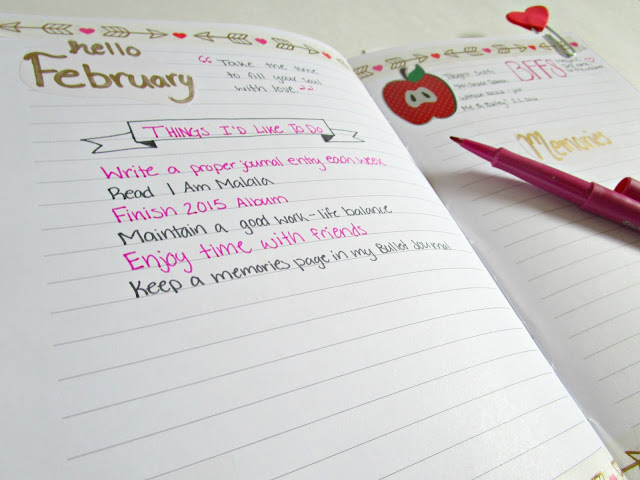 hello
February
Take the time
to fill your soul
with love
THINGS I'D LIKE TO DO
Write a proper journal entry each week
Read I Am Malala
Finish 2015 Album
Maintain a good work-life balance
Enjoy time with friends
Keep a memories page in my Bullet Journal
BFFS
Memories